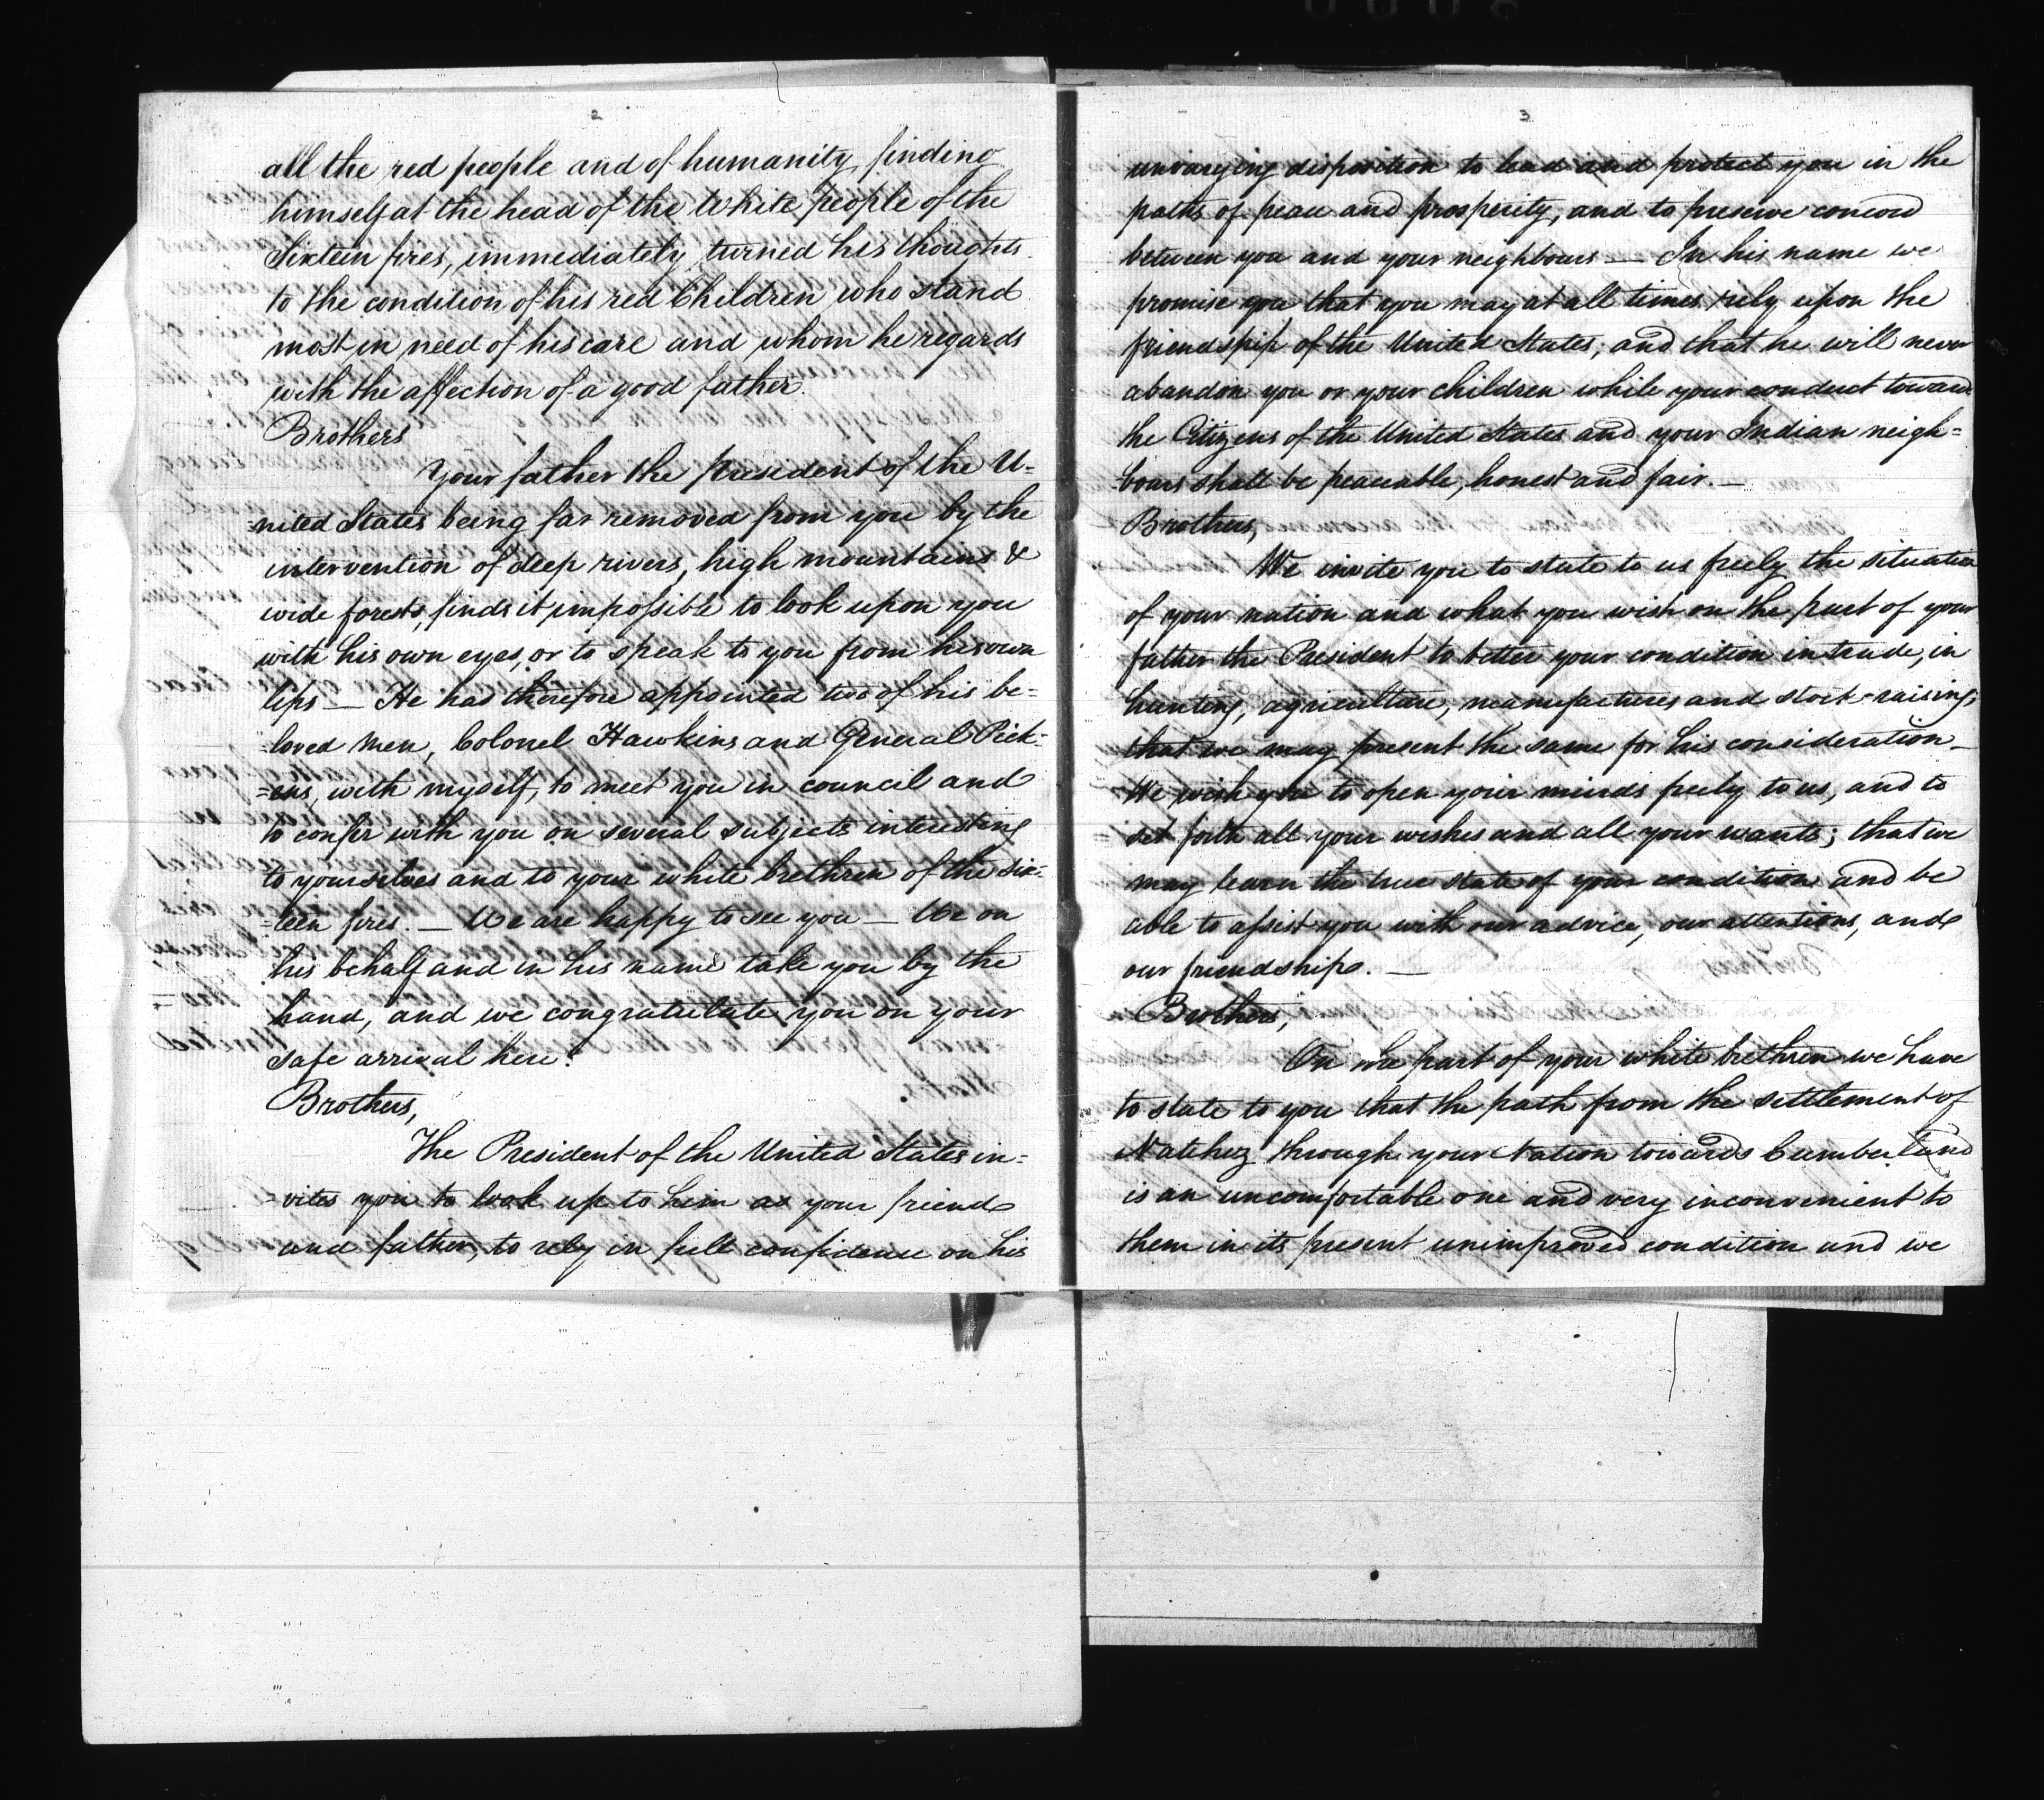 2
all the red people and of humanity finding
himself at the head of the White people of the
Sixteen fires, immediately turned his thoughts
to the condition of his red Children who stand
most in need of his care and whom he regards
with the affection of a good father.
Brothers
Your father the President of the U=
=nited States being far removed from you by the
intervention of deep rivers, high mountains &
wide forests, finds it impossible to look upon you
with his own eyes, or to speak to you from his own
lips — He has therefore appointed two of his be=
=loved men, Colonel Hawkins and General Pick=
=ens, with myself, to meet you in council and
to confer with you on several subjects interesting
to yourselves and to your white brethren of the six=
=teen fires. — We are happy to see you — We on
his behalf and in his name take you by the
hand, and we congratulate you on your
safe arrival here.
Brothers,
The President of the United States in=
=vites you to look up to him as your friend
and father, to rely in full confidence on his
3
unvarying disposition to lead and protect you in the
paths of peace and prosperity, and to preserve concord
between you and your neighbours — In his name we
promise you that you may at all times rely upon the
friendship of the United States, and that he will never
abandon you or your children while your conduct toward
the Citizens of the United States and your Indian neigh=
=bours shall be peaceable, honest and fair. —
Brothers,
We invite you to state to us freely the situation
of your nation and what you wish on the part of your
father the President to better your condition in trade, in
hunting, agriculture, manufactures and stock-raising,
that we may present the same for his consideration —
We wish you to open your minds freely to us, and to
set forth all your wishes and all your wants; that we
may learn the true state of your condition and be
able to assist you with our advice, our attentions, and
our friendships. —
Brothers,
On the part of your white brethren we have
to state to you that the path from the settlement of
Natchez through your Nation towards Cumberland
is an uncomfortable one and very inconvenient to
them in its present unimproved condition and we